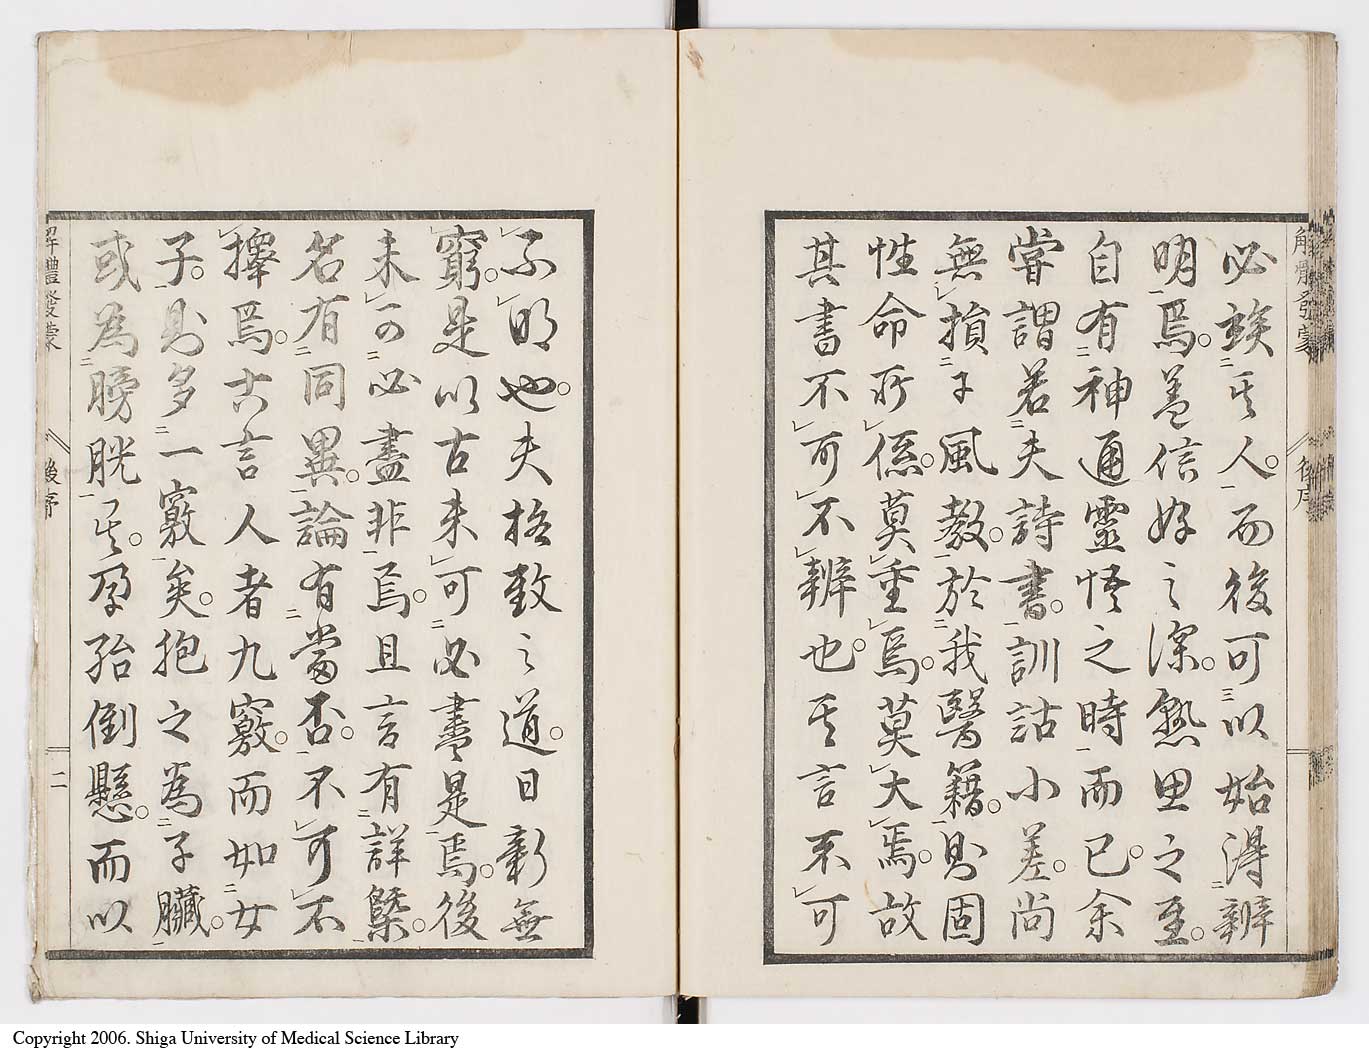 解體發蒙
後序
必竢其人。而後可以始得辨
明焉。蓋信好之深。熟思之至。
自有神通靈悟之時而已。余
嘗謂。若夫詩書。訓詁小差。尚
無損于風教。於我醫籍。則固
性命所係。莫重焉。莫大焉。故
其書不可不辨也。其言不可
不明也。夫格致之道。日新無
窮。是以古未可必盡是焉。後
未可必盡非焉。且言有詳槩。
名有同異。論有當否。不可不
擇焉。古言人者九竅。而如女
子。則多一竅矣。抱之為子臟。
或為膀胱其。孕殆倒懸。而以
解體發蒙
後序
二
Copyright 2006. Shiga University of Medical Science Library